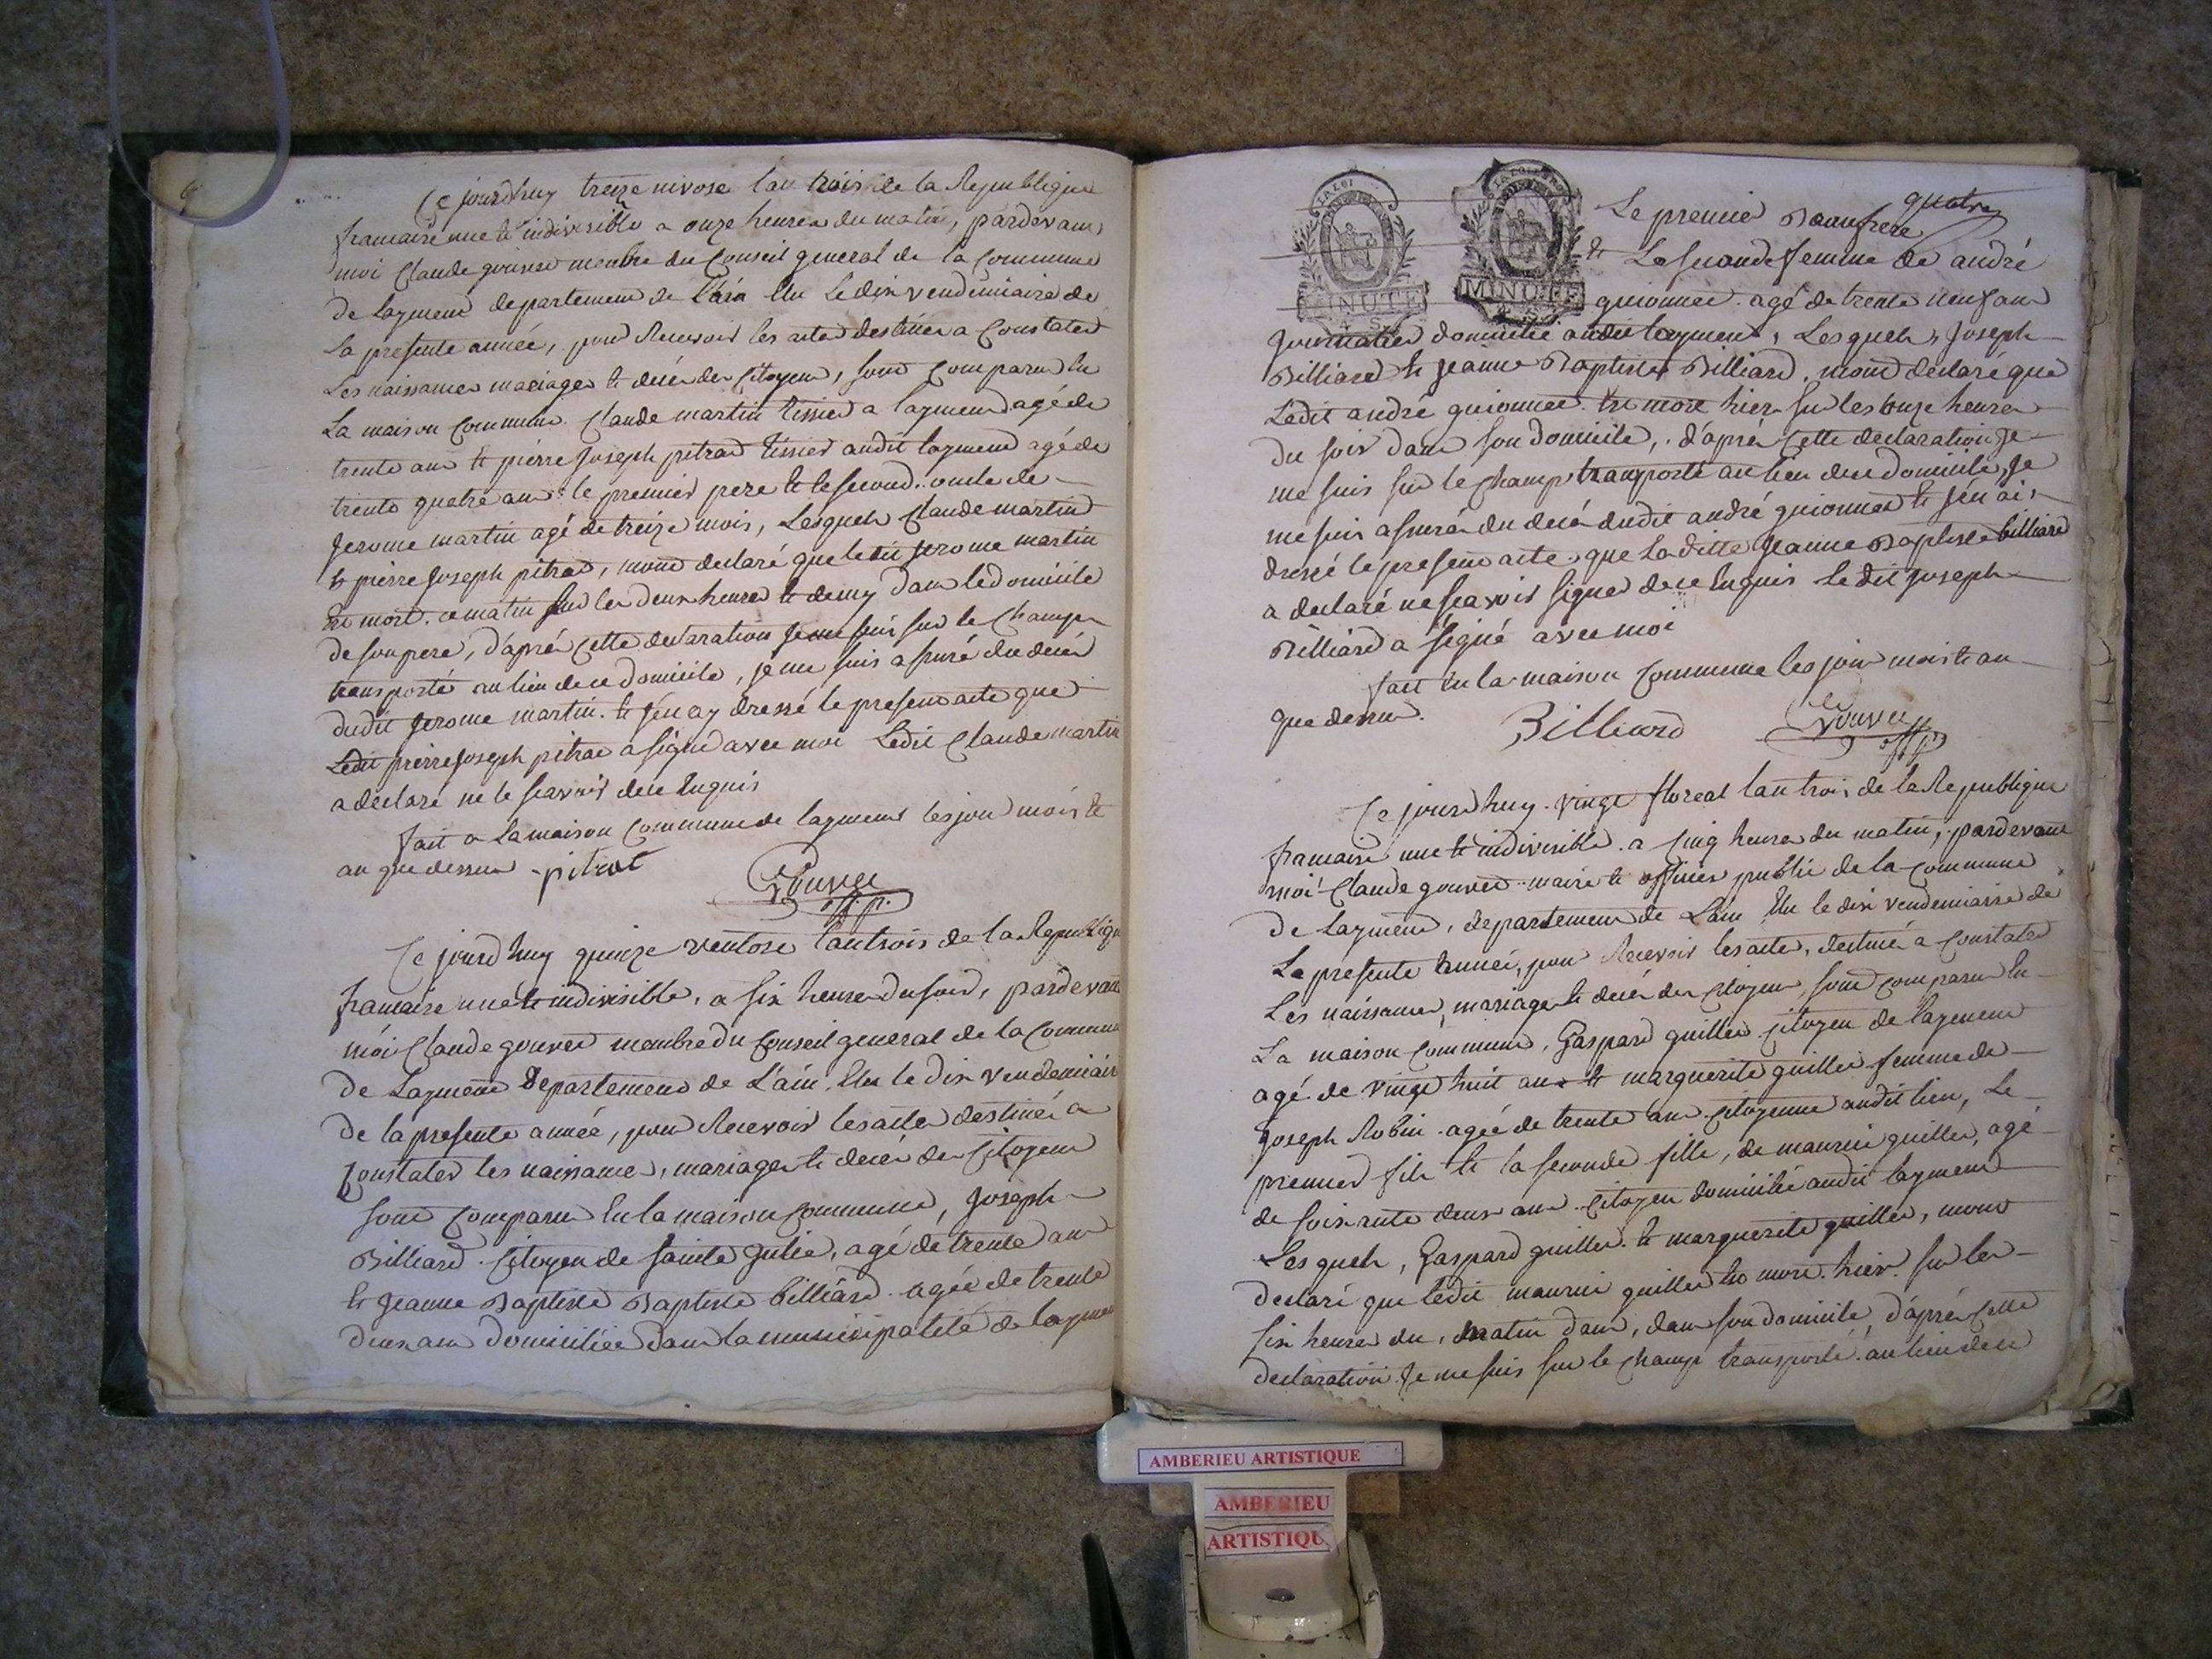 Ce jourdhuy treize nivose lan trois de la Republique
francaise une et indivisible a onze heures du matin, pardevant
moi Claude gouvee membre du Conseil general de la Commune
de Layment departement de l'ain Elu le dix vendemiaire de
la presente année, pour Recevoir les actes destinés a Constater
Les naissances mariages et décés des Citoyens, sont Comparus En
La maison Commune Claude martin tissier a layment agé de
trente ans et pierre Joseph pitrat tissier audit layment agé de
trente quatre ans le premier pere et le second oncle de
Jerome martin agé de treize mois, Lesquels Claude martin
et pierre Joseph pitrat, mont declaré que ledit Jerome martin
Est mort ce matin sur les deux heures et demy dans le domicile
de son pere, d'aprés Cette declaration Je me suis sur le Champ
transporté au lieu de ce domicile, je me suis assuré du décés
dudit Jerome martin et j'en ay dressé le present acte que
Ledit pierre Joseph pitrat a signé avec moi Ledit Claude martin
a declaré ne le scavoir de ce Enquis
fait a La maison Commune de layment les jour mois et
an que dessus pitrat
Gouvee
off. p.
Ce jourd huy quinze ventose lan trois de la Republique
francaise une et indivisible, a six heures du soir, pardevant
moi Claude gouvee membre du Conseil general de la Commune
de Layment Departement de L'ain. Elu le dix Vendemiaire
de la presente année, pour Recevoir les actes destinés a
Constater les naissances, mariages et décés des Citoyens
sont Comparus En la maison Commune, Joseph
Billiard Citoyen de Sainte Julie, agé de trente ans
et Jeanne Baptiste Baptiste billiard agée de trente
deux ans domiciliée dans la municipalité de layment
quatre
Le premier Beaufrere
et La seconde femme de andré
guionnee agé de trente neuf ans
Journalier domicilié audit layment, Lesquels, Joseph
Billiard et Jeanne Baptiste Billiard, mont declaré que
Ledit andré guionnee Est mort hier sur les onze heures
du soir dans son domicile, d'aprés Cette declaration Je
me suis sur le Champ transporté au lieu de ce domicile, Je
me suis assuré du décés dudit andré guionnee et j'en ai
dressé le present acte que Laditte Jeanne Baptiste billiard
a declaré ne scavoir signer de ce Enquis Ledit Joseph
Billiard a signé avec moi
fait En la maison Commune les jour mois et an
que dessus. Billiard Gouvee
off p
Ce jourdhuy vingt floreal lan trois de la Republique
francaise une et indivisible a Cinq heures du matin, pardevant
moi Claude gouvee maire et officier public de la Commune
de Layment, departement de Lain Elu le dix vendemiaire de
La presente année, pour Recevoir les actes, destinés a Constater
Les naissances, mariages et décés des Citoyens, sont Comparus En
La maison Commune, Gaspard guillee Citoyen de layment
agé de vingt huit ans et marguerite guillee femme de
Joseph Robin agée de trente ans Citoyenne audit lieu, Le
premier fils et la seconde fille, de maurice guillee, agé
de soixante deux ans Citoyen domicilié audit layment
Lesquels, Gaspard guillee et marguerite guillee, mont
declaré que ledit maurice guillee Est mort hier sur les
six heures du matin dans, dans son domicile, d'aprés Cette
declaration Je me suis sur le Champ transporté au lieu de ce
LA LOI
MINUTE
MINUTE
AMBERIEU ARTISTIQUE
AMBERIEU
ARTISTIQU